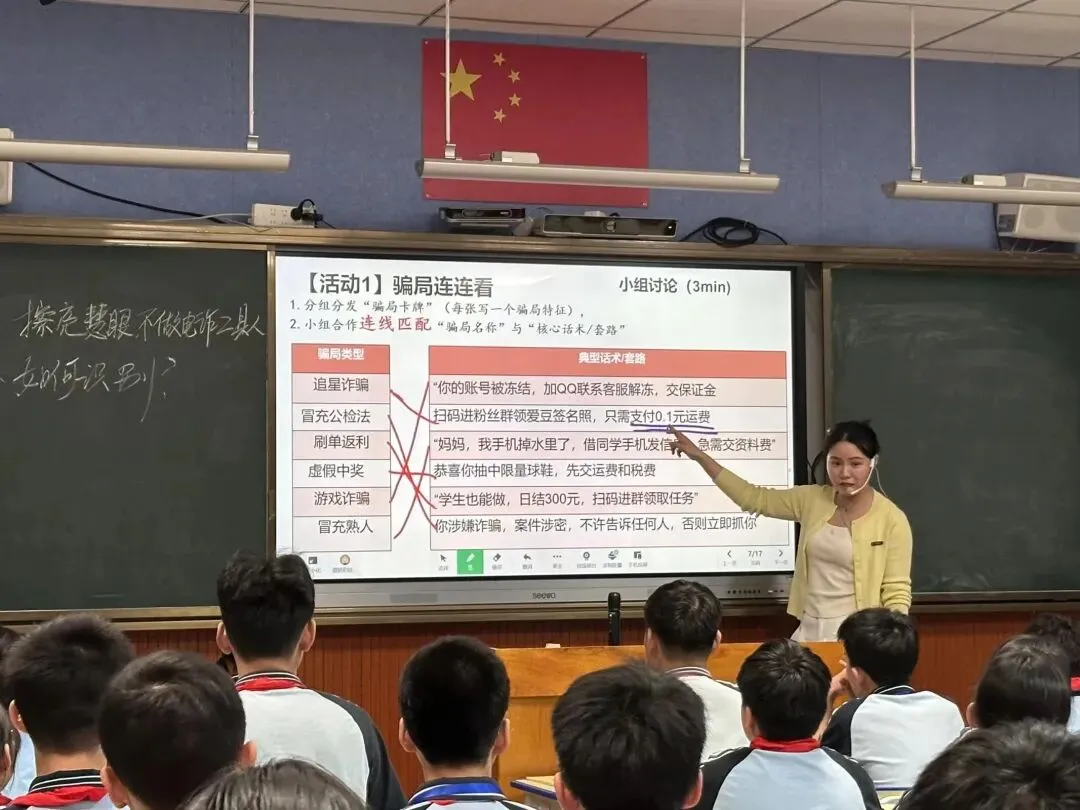 擦亮慧眼,不做电诈工具人
如何识别?
【活动1】骗局连连看
小组讨论(3min)
1. 分组分发“骗局卡牌”(每张写一个骗局特征),
2. 小组合作连线匹配“骗局名称”与“核心话术/套路”
骗局类型
典型话术/套路
追星诈骗
“你的账号被冻结,加QQ联系客服解冻,交保证金
冒充公检法
扫码进粉丝群领爱豆签名照,只需支付0.1元运费
刷单返利
“妈妈,我手机掉水里了,借同学手机发信 急需交资料费”
虚假中奖
恭喜你抽中限量球鞋,先交运费和税费
游戏诈骗
“学生也能做,日结300元,扫码进群领取任务”
冒充熟人
你涉嫌诈骗,案件涉密,不许告诉任何人,否则立即抓你
7/17
seewo